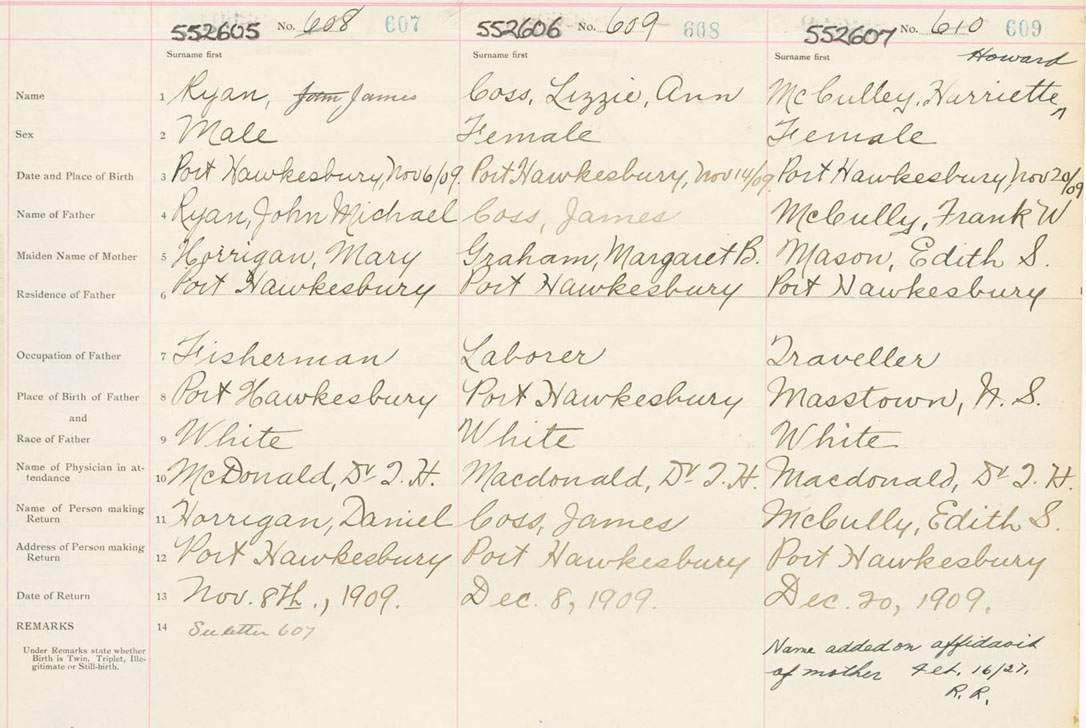 552605 No. 608 607 552606 No. 609 608 552607 No. 610 609
Surname first Surname first Surname first Howard
Name 1 Ryan, John James Coss, Lizzie, Ann McCulley, Harriette ^
Sex 2 Male Female Female
Date and Place of Birth 3 Port Hawkesbury, Nov 6/09. Port Hawkesbury, Nov 14/09 Port Hawkesbury, Nov 20/09
Name of Father 4 Ryan, John Michael Coss, James McCully, Frank W
Maiden Name of Mother 5 Horrigan, Mary Graham, Margaret B. Mason, Edith S.
Residence of Father 6 Port Hawkesbury Port Hawkesbury Port Hawkesbury
Occupation of Father 7 Fisherman Laborer Traveller
Place of Birth of Father 8 Port Hawkesbury Port Hawkesbury Masstown, N. S.
and
Race of Father 9 White White White
Name of Physician in at-
tendance 10 McDonald, Dr J. H. Macdonald, Dr J. H. Macdonald, Dr J. H.
Name of Person making
Return 11 Horrigan, Daniel Coss, James McCully, Edith S.
Address of Person making
Return 12 Port Hawkesbury Port Hawkesbury Port Hawkesbury
Date of Return 13 Nov. 8th., 1909. Dec. 8, 1909. Dec. 20, 1909.
REMARKS 14 See letter 607
Under Remarks state whether
Birth is Twin, Triplet, Ille-
gitimate or Still-birth.
Name added on affidavit
of mother Feb. 16/27.
R. R.